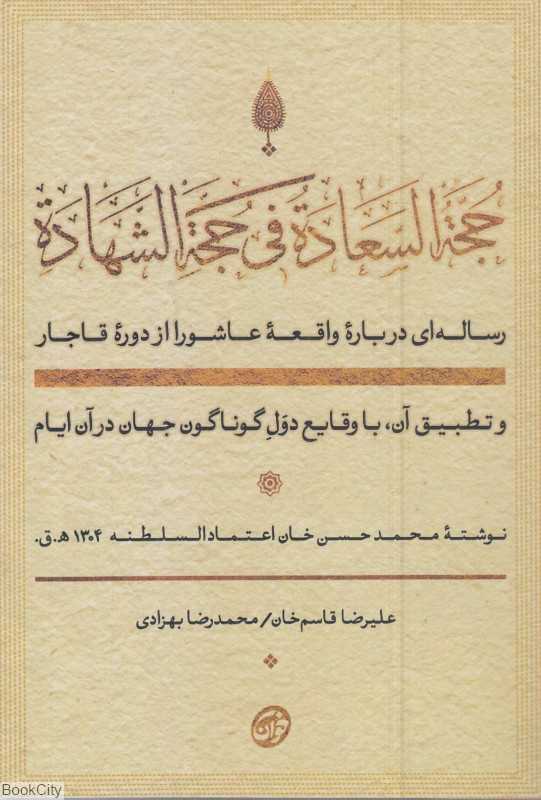 حُجَّةُ السَّعادَةُ فی حُجَّةِ الشَّهادَةِ
رساله‌ای دربارۀ واقعۀ عاشورا از دورۀ قاجار
و تطبیق آن، با وقایع دوَلِ گوناگون جهان در آن ایام
نوشتۀ محمد حسن خان اعتماد السلطنه ۱۳۰۴ ه‍.ق.
علیرضا قاسم‌خان/محمدرضا بهزادی
BookCity